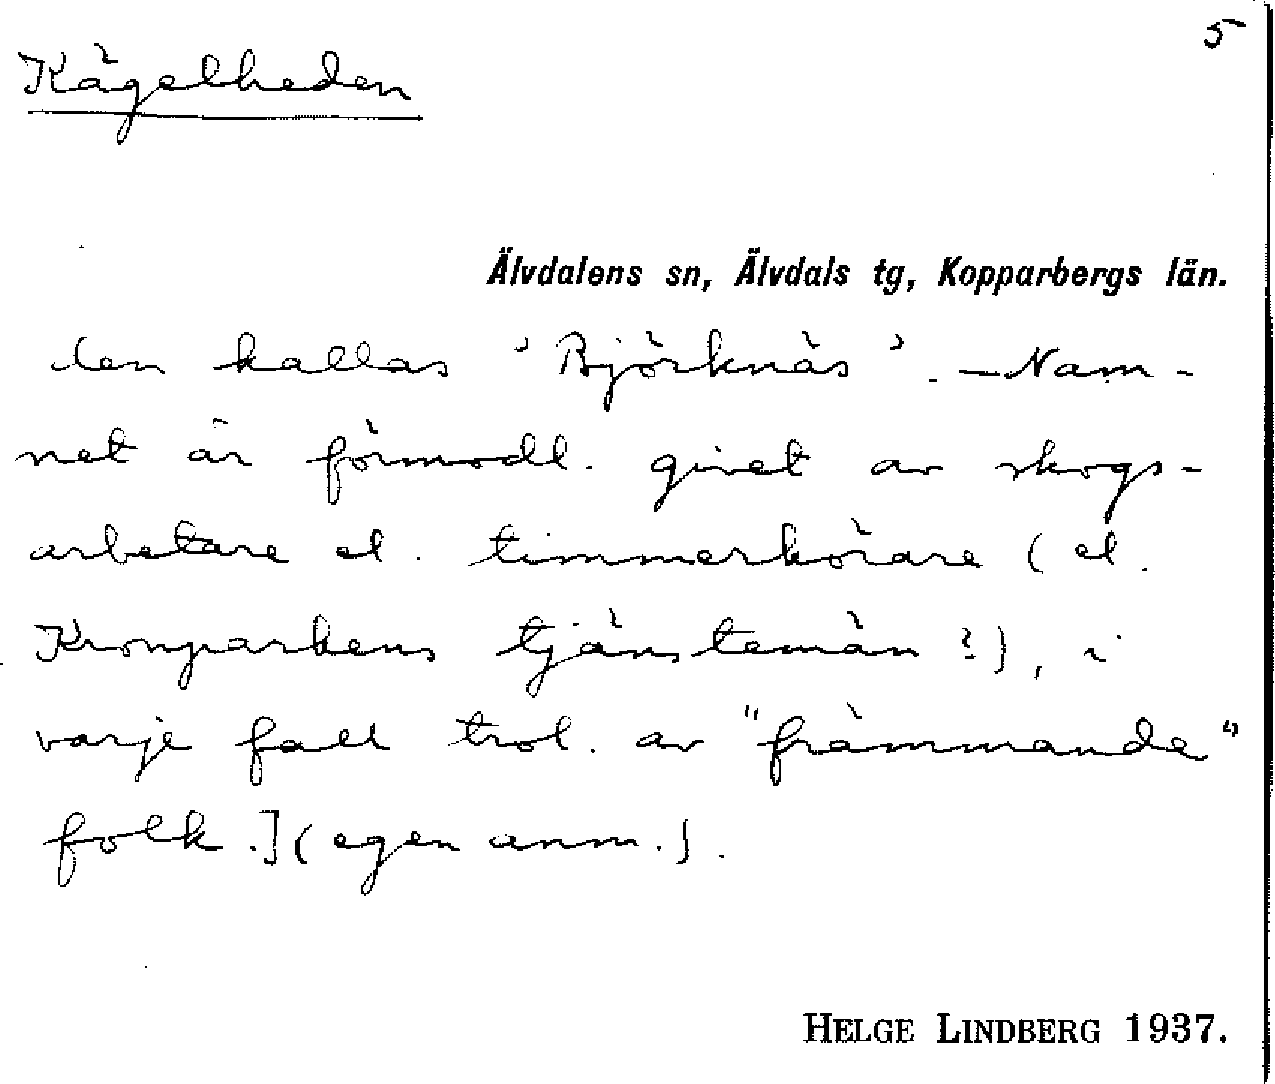 5
Kägelheden
Älvdalens sn, Älvdals tg, Kopparbergs län.
len kallas 'Björknäs'. – Nam-
net är förmodl. givet av skogs-
arbetare el. timmerkörare (el.
Kronparkens tjänstemän?), i
varje fall trol. av "främmande"
folk.] (egen anm.).
HELGE LINDBERG 1937.